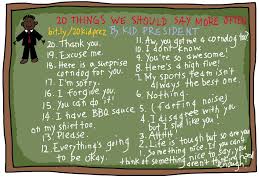 20 THINGS WE SHOULD SAY MORE OFTEN
bit.ly/20kidprez By KID PRESIDENT
20. Thank you.
19. Excuse me.
18. Here is a surprise
corndog for you.
17. I'm sorry.
16. I forgive you.
15. You can do it!
14. I have BBQ sauce
on my shirt too.
13. Please.
12. Everything's going
to be okay.
11. Aw, you got me a corndog too?
10. I don't know.
9. You're so awesome!
8. Here's a high five!
7. My sports team isn't
always the best one.
6. Nothing.
5. (farting noise)
4. I disagree with you
but I still like you!
3. Ahhh!
2. Life is tough but so are you
1. Something nice. If you can't
think of something nice to say, you
aren't thinking hard
enough.